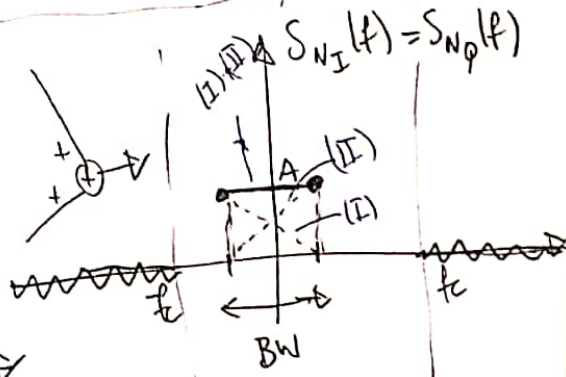 S_{N_I}(f) = S_{N_Q}(f)
(I)+(II)
+
+
+
A
(II)
(I)
fc
fc
BW